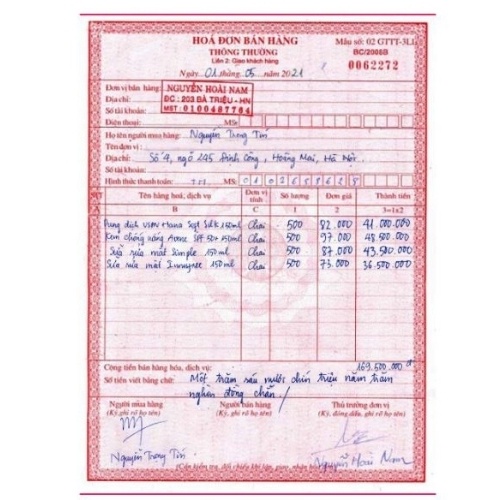 HOÁ ĐƠN BÁN HÀNG
THÔNG THƯỜNG
Liên 2: Giao khách hàng
Ngày 01 tháng 05 năm 2021
Mẫu số: 02 GTTT-3LL
BC/2008B
0062272
Đơn vị bán hàng: NGUYỄN HOÀI NAM
Địa chỉ: ĐC : 203 BÀ TRIỆU - HN
Số tài khoản: MST: 0100487764
Điện thoại: MS:
Họ tên người mua hàng: Nguyễn Trọng Tín
Tên đơn vị:
Địa chỉ: Số 4, ngõ 245 Định Công, Hoàng Mai, Hà Nội.
Số tài khoản:
Hình thức thanh toán: TM MS:
Tên hàng hoá, dịch vụ Đơn vị tính Số lượng Đơn giá Thành tiền
B C 1 2 3=1x2
Dung dịch Hana 150ml Chai 500 82.000 41.000.000
Kem chống nắng SPF 50+ 150ml Chai 500 97.000 48.500.000
Sữa rửa mặt Simple 150ml Chai 500 87.000 43.500.000
Sữa rửa mặt Innisfree 150ml Chai 500 73.000 36.500.000
Cộng tiền bán hàng hóa, dịch vụ: 169.500.000đ
Số tiền viết bằng chữ: Một trăm sáu mươi chín triệu năm trăm
nghìn đồng chẵn./
Người mua hàng Người bán hàng Thủ trưởng đơn vị
(Ký, ghi rõ họ tên) (Ký, ghi rõ họ tên) (Ký, đóng dấu, ghi rõ họ tên)
Nguyễn Trọng Tín Nguyễn Hoài Nam